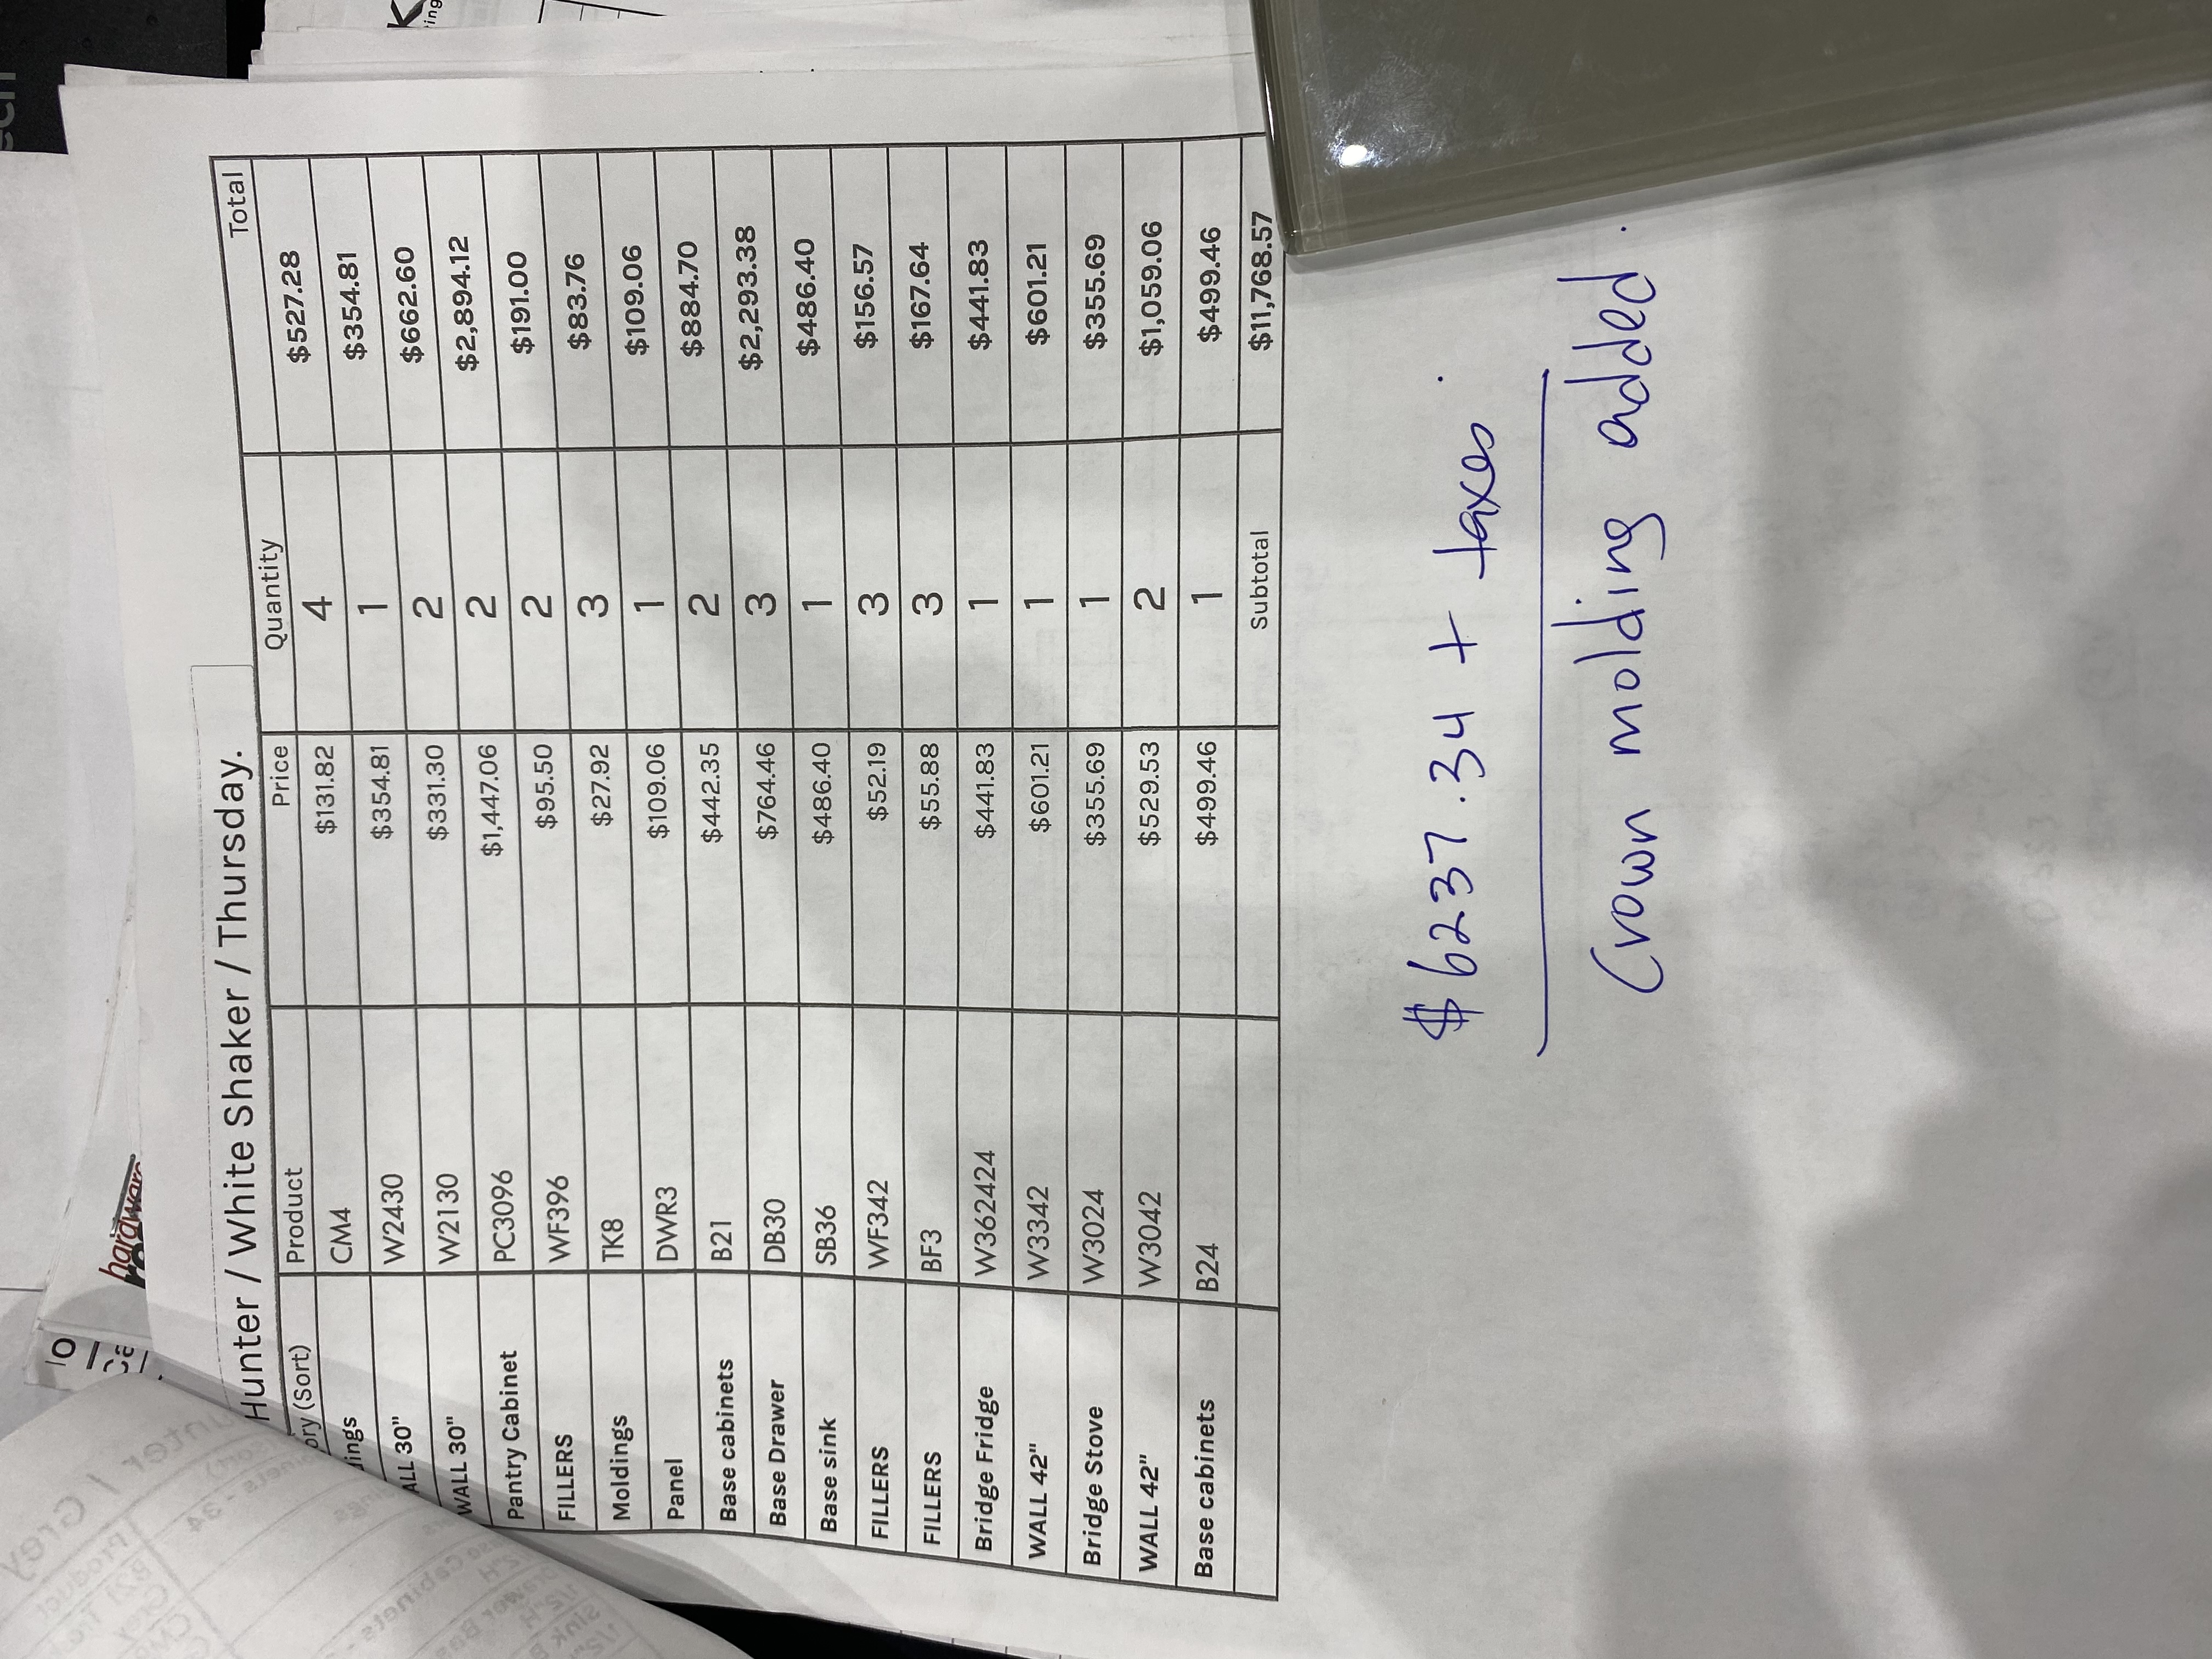 Hunter / White Shaker / Thursday.
ory (Sort) Product Price Quantity Total
dings CM4 $131.82 4 $527.28
ALL 30" W2430 $354.81 1 $354.81
WALL 30" W2130 $331.30 2 $662.60
Pantry Cabinet PC3096 $1,447.06 2 $2,894.12
FILLERS WF396 $95.50 2 $191.00
Moldings TK8 $27.92 3 $83.76
Panel DWR3 $109.06 1 $109.06
Base cabinets B21 $442.35 2 $884.70
Base Drawer DB30 $764.46 3 $2,293.38
Base sink SB36 $486.40 1 $486.40
FILLERS WF342 $52.19 3 $156.57
FILLERS BF3 $55.88 3 $167.64
Bridge Fridge W362424 $441.83 1 $441.83
WALL 42" W3342 $601.21 1 $601.21
Bridge Stove W3024 $355.69 1 $355.69
WALL 42" W3042 $529.53 2 $1,059.06
Base cabinets B24 $499.46 1 $499.46
Subtotal $11,768.57
$ 6237.34 + taxes.
Crown molding added.
hardware